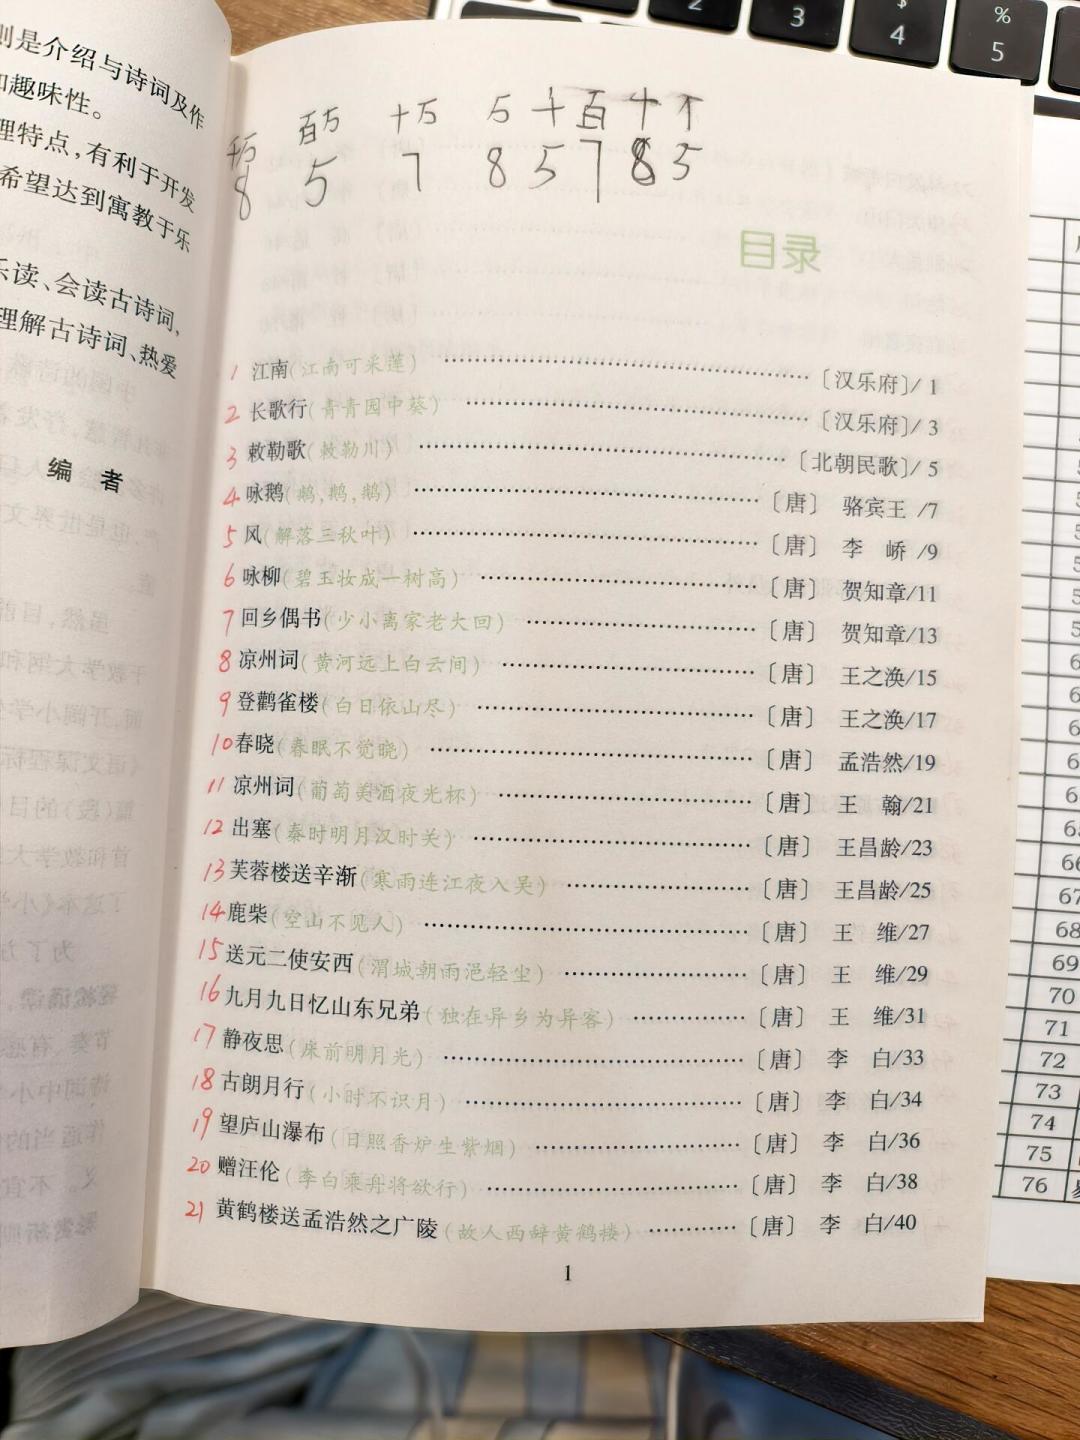 则是介绍与诗词及作
和趣味性。
理特点，有利于开发
希望达到寓教于乐
乐读、会读古诗词，
理解古诗词、热爱
编 者
千万 百万 十万 万 千 百 十 个
8 5 7 8 5 7 8 5
目录
1 江南（江南可采莲）〔汉乐府〕/ 1
2 长歌行（青青园中葵）〔汉乐府〕/ 3
3 敕勒歌（敕勒川）〔北朝民歌〕/ 5
4 咏鹅（鹅，鹅，鹅）〔唐〕 骆宾王 /7
5 风（解落三秋叶）〔唐〕 李 峤 /9
6 咏柳（碧玉妆成一树高）〔唐〕 贺知章/11
7 回乡偶书（少小离家老大回）〔唐〕 贺知章/13
8 凉州词（黄河远上白云间）〔唐〕 王之涣/15
9 登鹳雀楼（白日依山尽）〔唐〕 王之涣/17
10 春晓（春眠不觉晓）〔唐〕 孟浩然/19
11 凉州词（葡萄美酒夜光杯）〔唐〕 王 翰/21
12 出塞（秦时明月汉时关）〔唐〕 王昌龄/23
13 芙蓉楼送辛渐（寒雨连江夜入吴）〔唐〕 王昌龄/25
14 鹿柴（空山不见人）〔唐〕 王 维/27
15 送元二使安西（渭城朝雨浥轻尘）〔唐〕 王 维/29
16 九月九日忆山东兄弟（独在异乡为异客）〔唐〕 王 维/31
17 静夜思（床前明月光）〔唐〕 李 白/33
18 古朗月行（小时不识月）〔唐〕 李 白/34
19 望庐山瀑布（日照香炉生紫烟）〔唐〕 李 白/36
20 赠汪伦（李白乘舟将欲行）〔唐〕 李 白/38
21 黄鹤楼送孟浩然之广陵（故人西辞黄鹤楼）〔唐〕 李 白/40
1
2
3
$ 4
% 5
66
67
68
69
70
71
72
73
74
75
76